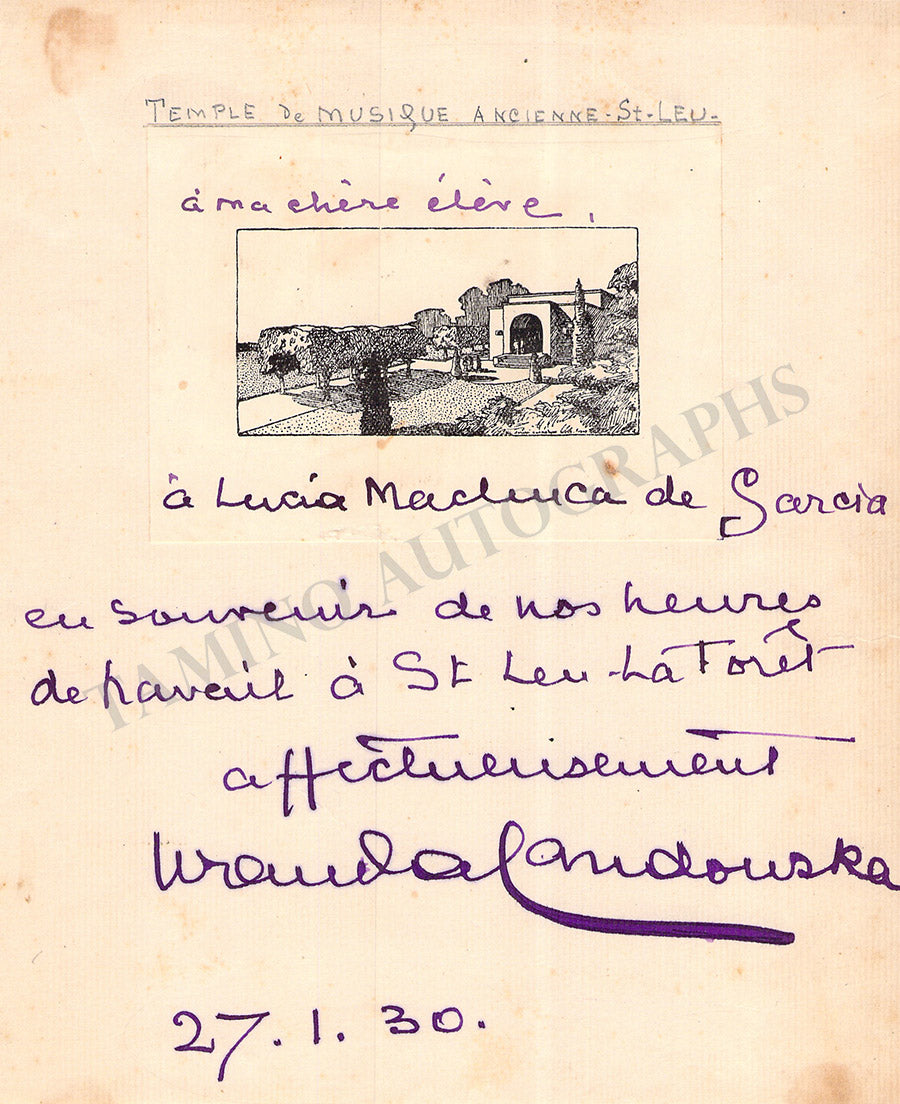 TEMPLE De MUSIQUE ANCIENNE-St-LEU-
à ma chère élève,
à Lucia Machuca de Garcia
en souvenir de nos heures
de travail à St Leu-La Forêt
affectueusement
Wanda Landowska
27.1.30.
TAMINO AUTOGRAPHS